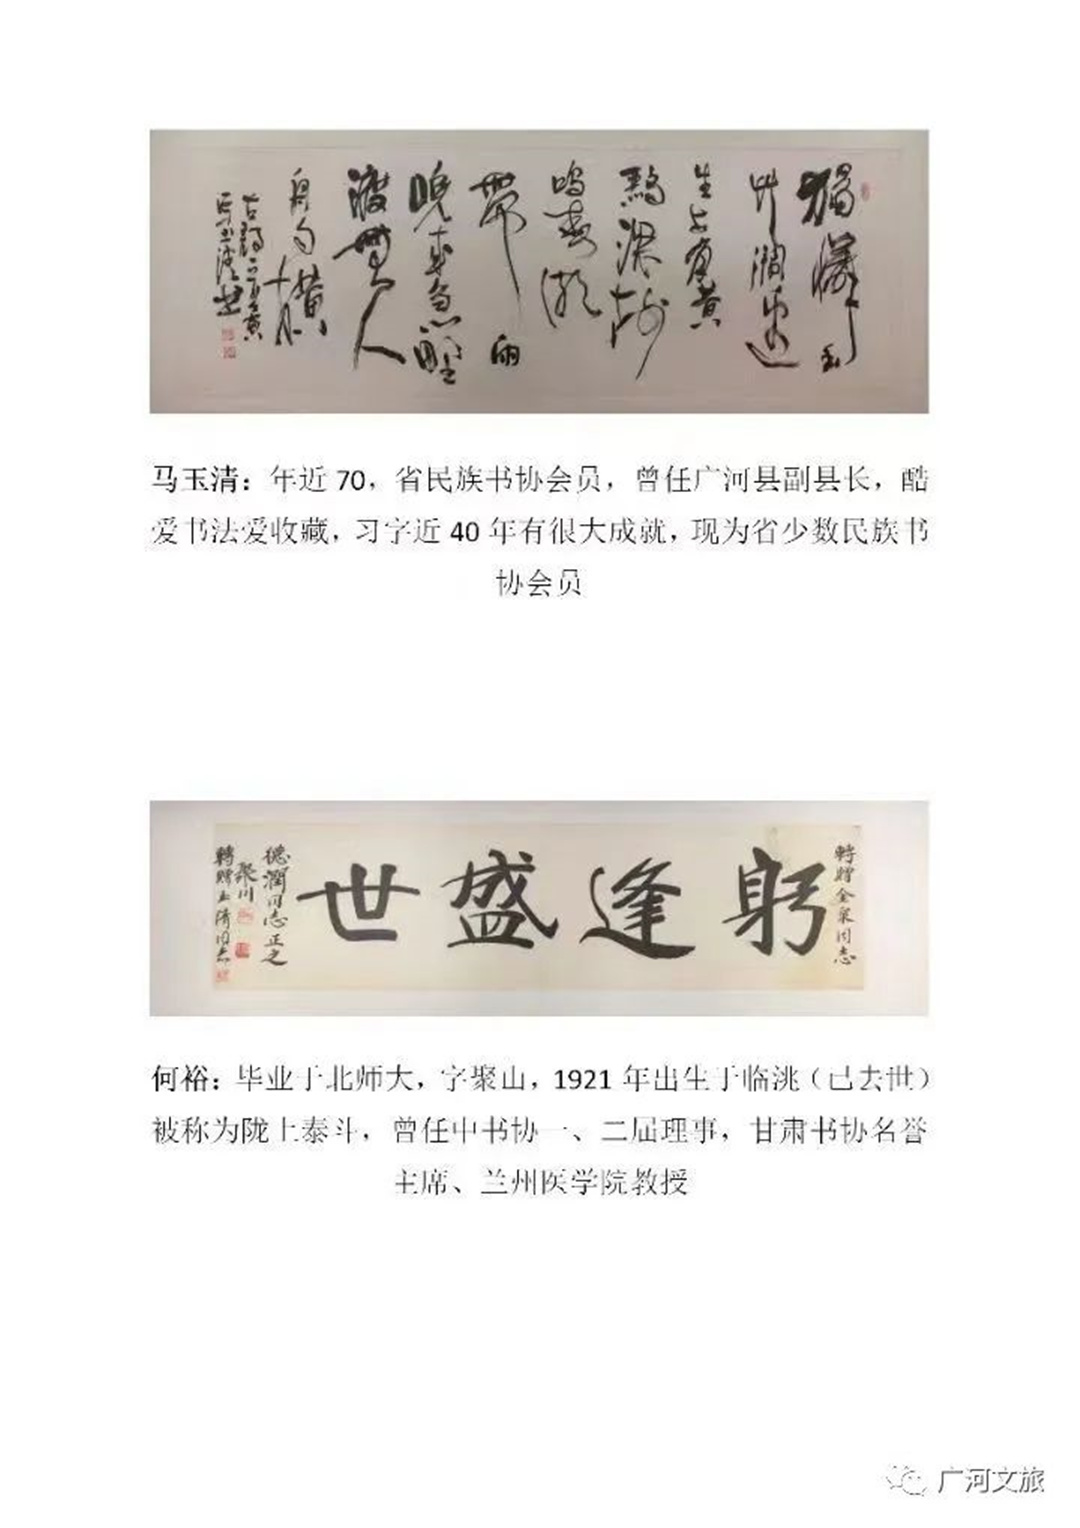 獨憐幽
草澗邊
生上有黄
鸝深树
鳴春潮
帶雨
晚来急野
渡無人
舟自橫
马玉清：年近 70，省民族书协会员，曾任广河县副县长，酷
爱书法爱收藏，习字近 40 年有很大成就，现为省少数民族书
协会员
轉贈金泉同志
躬逢盛世
德潤同志正之
聚川
轉贈玉清同志
何裕：毕业于北师大，字聚山，1921 年出生于临洮（已去世）
被称为陇上泰斗，曾任中书协一、二届理事，甘肃书协名誉
主席、兰州医学院教授
广河文旅